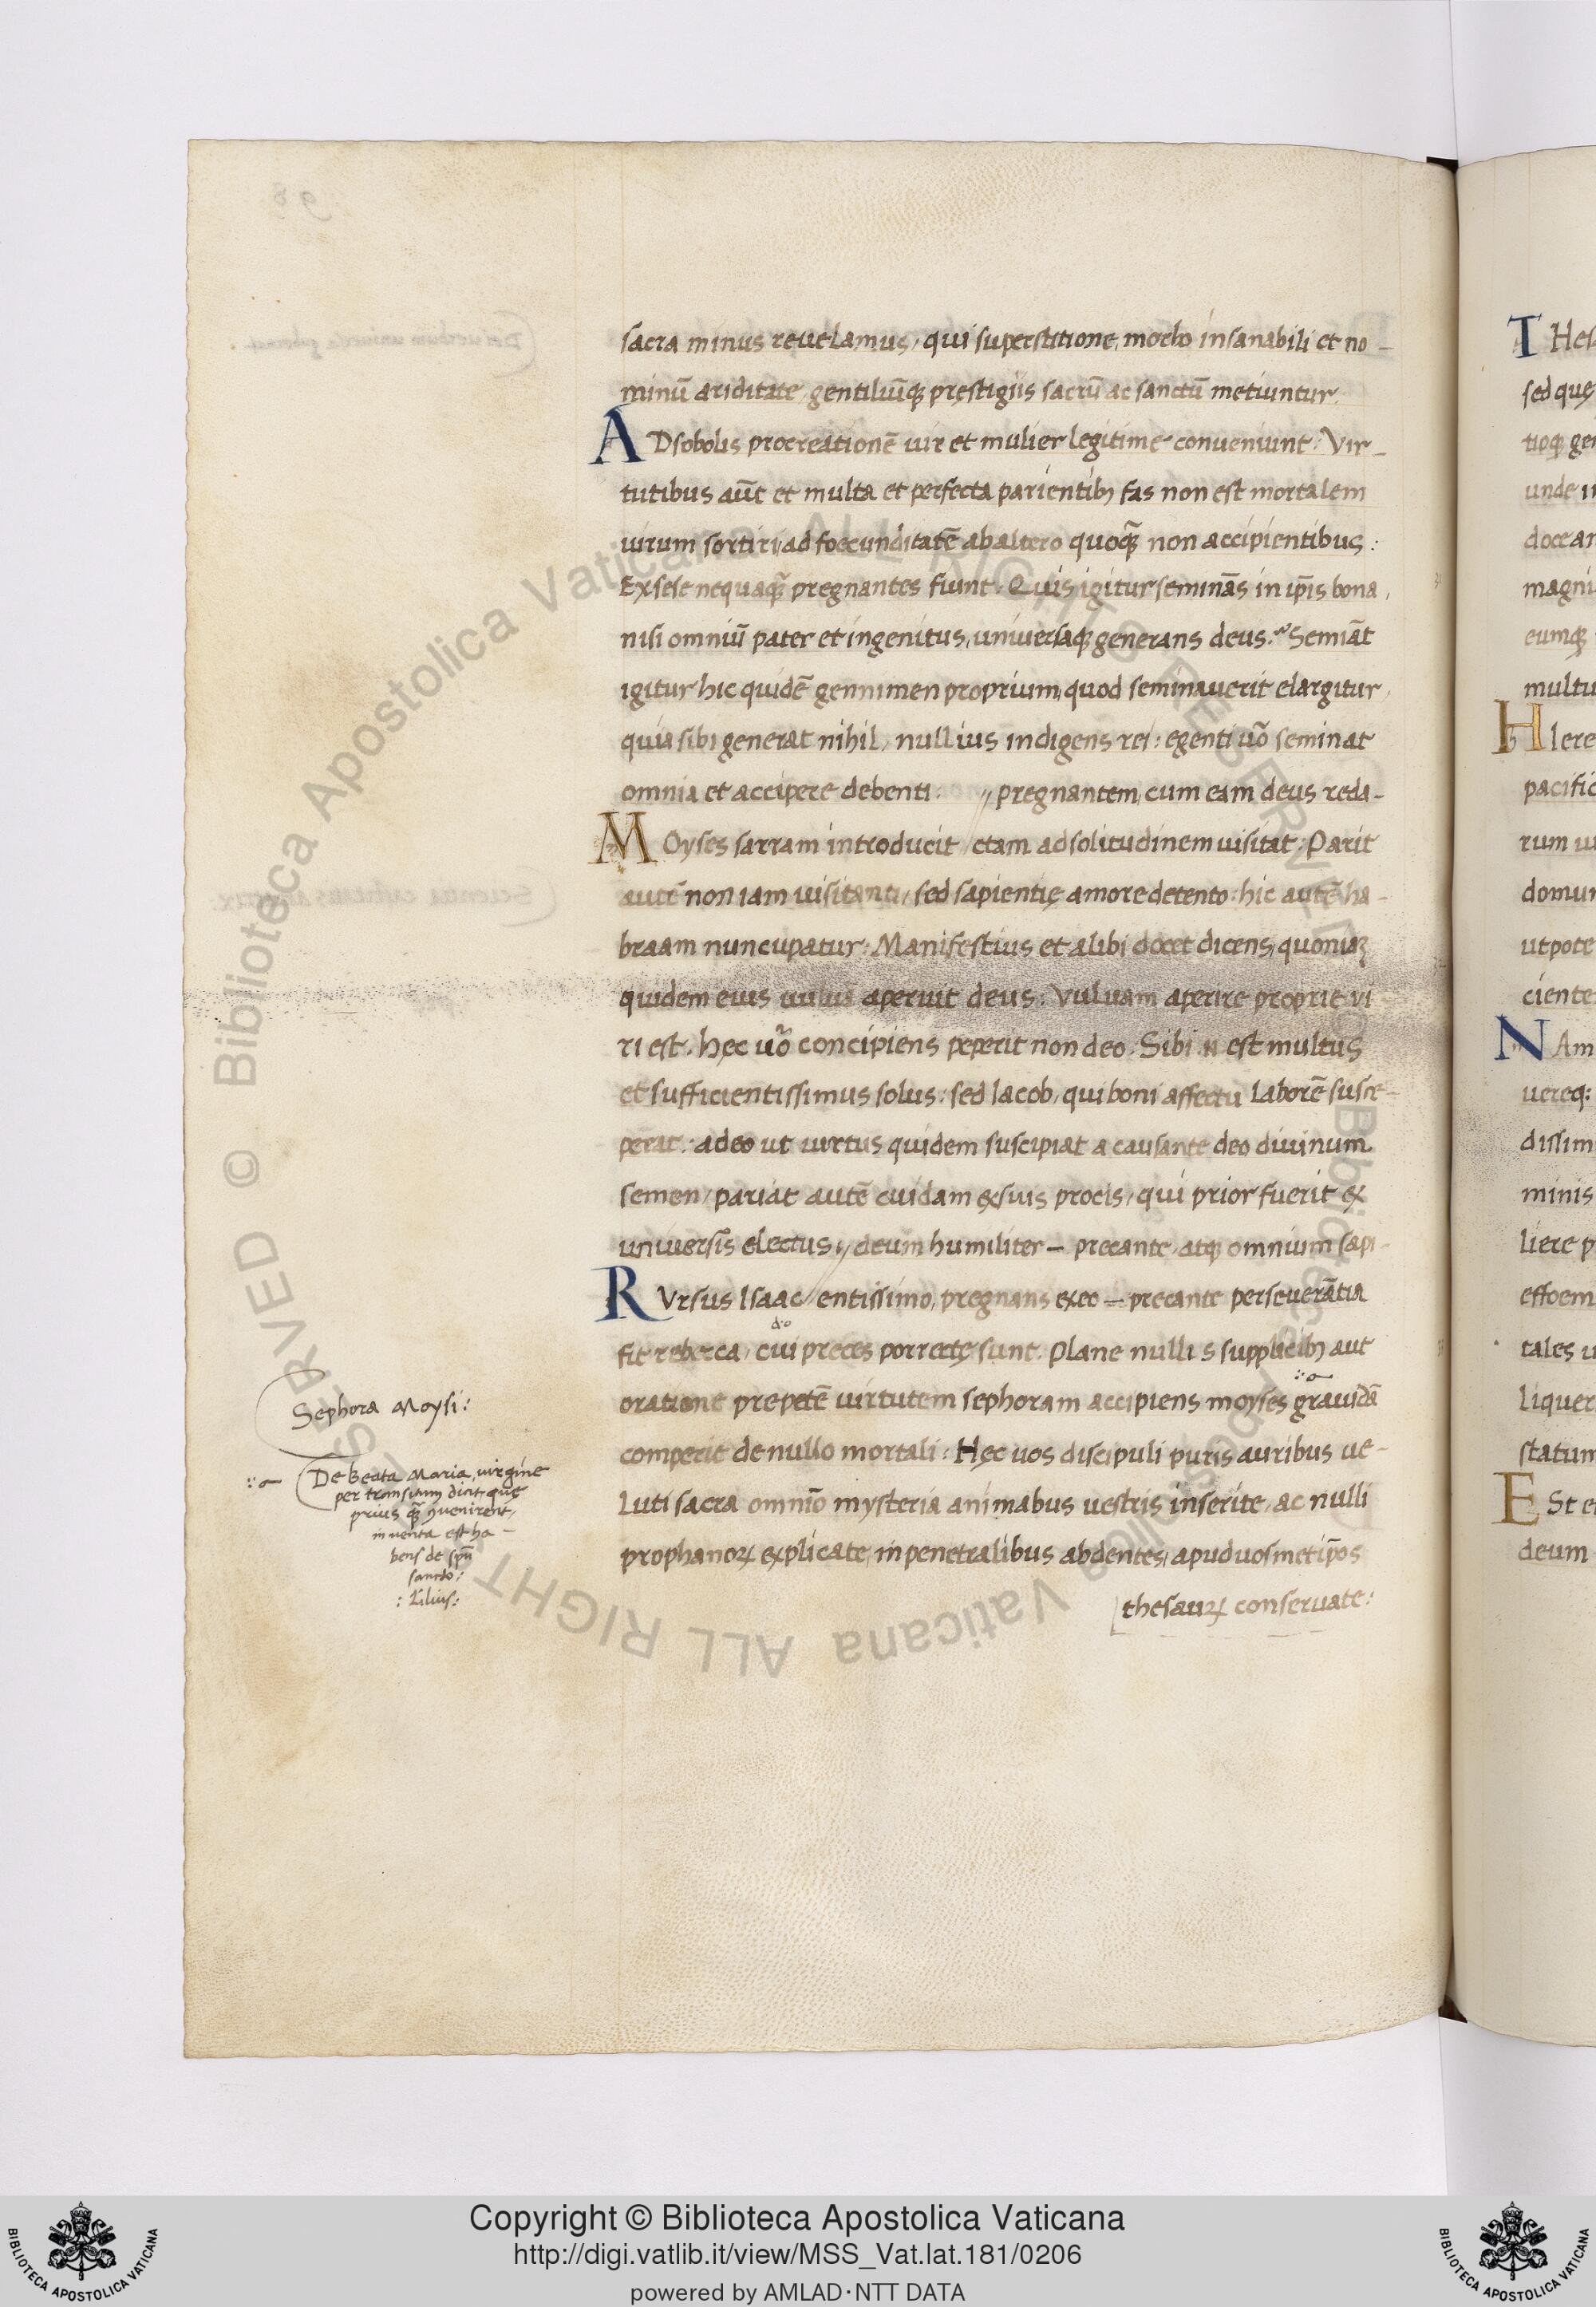 sacra minus reuelamus, qui superstitione, morbo insanabili et no-
minũ ariditate, gentiliũqꝫ pręstigiis sacrũ ac sanctũ metiuntur.
ADsobolis procreationẽ uir et mulier legitime conueniunt: Vir-
tutibus aũt et multa et perfecta parientibꝫ fas non est mortalem
uirum sortiri, ad foecunditatẽ ab altero quoqꝫ̃ non accipientibus:
Ex sese nequaqꝫ̃ pregnantes fiunt. Quis igitur seminãs in ip̃is bona,
nisi omniũ pater et ingenitus, uniuersaqꝫ generans deus. Semiãt
igitur hic quidẽ gennimen proprium, quod seminauerit elargitur,
quia sibi generat nihil, nullius indigens rei: egenti uõ seminat
omnia et accipere debenti: // pregnantem, cum eam deus reda-
MOyses sarram introducit / ctam ad solitudinem uisitat: Parit
autẽ non iam uisitanti, sed sapientię amore detento: hic autẽ ha-
braam nuncupatur: Manifestius et alibi docet dicens, quoniaꝫ
quidem eius uuluã aperuit deus: Vuluam aperire proprie ui
ri est. hęc uõ concipiens peperit non deo. Sibi n̄ est multus
et sufficientissimus solus: sed Iacob, qui boni affectu laborẽ susce-
perat: adeo ut uirtus quidem suscipiat a causante deo diuinum
semen, pariat autẽ cuidam ex suis procis, qui prior fuerit ex
uniuersis electus: // deum humiliter — precante, atqꝫ omnium sapi-
RVrsus Isaac // entissimo, pregnans ex eo — precante perseuerãtia
d:o
fit rebecca, cui preces porrectę sunt. Plane nullis supplicibꝫ aut
oratione prepetẽ uirtutem sephoram accipiens moyses grauidã
comperit de nullo mortali: Hęc uos discipuli puris auribus ue-
luti sacra omnĩo mysteria animabus uestris inserite, ac nulli
prophanoꝝ explicate, in penetralibus abdentes, apud uosmetip̃os
thesauꝝ conseruate:
Sephora Moysi:
De beata Maria uirgine
per transitum dicit, que
prius qꝫ̃ ꝯuenirent,
inuenta est ha-
bens de sp̃u
sancto:
: Lilius:
THes
sed quę
tioqꝫ gen
unde i
docear
magni
eumqꝫ
multu
HIere
pacific
rum ui
domun
utpote
ciente
NAm
uereq:
dissim
minis
liere p
effoem
tales u
liquer
statum
ESt e
deum
Copyright © Biblioteca Apostolica Vaticana
http://digi.vatlib.it/view/MSS_Vat.lat.181/0206
powered by AMLAD·NTT DATA
© Biblioteca Apostolica Vaticana ALL RIGHTS RESERVED
BIBLIOTECA APOSTOLICA VATICANA
BIBLIOTECA APOSTOLICA VATICANA